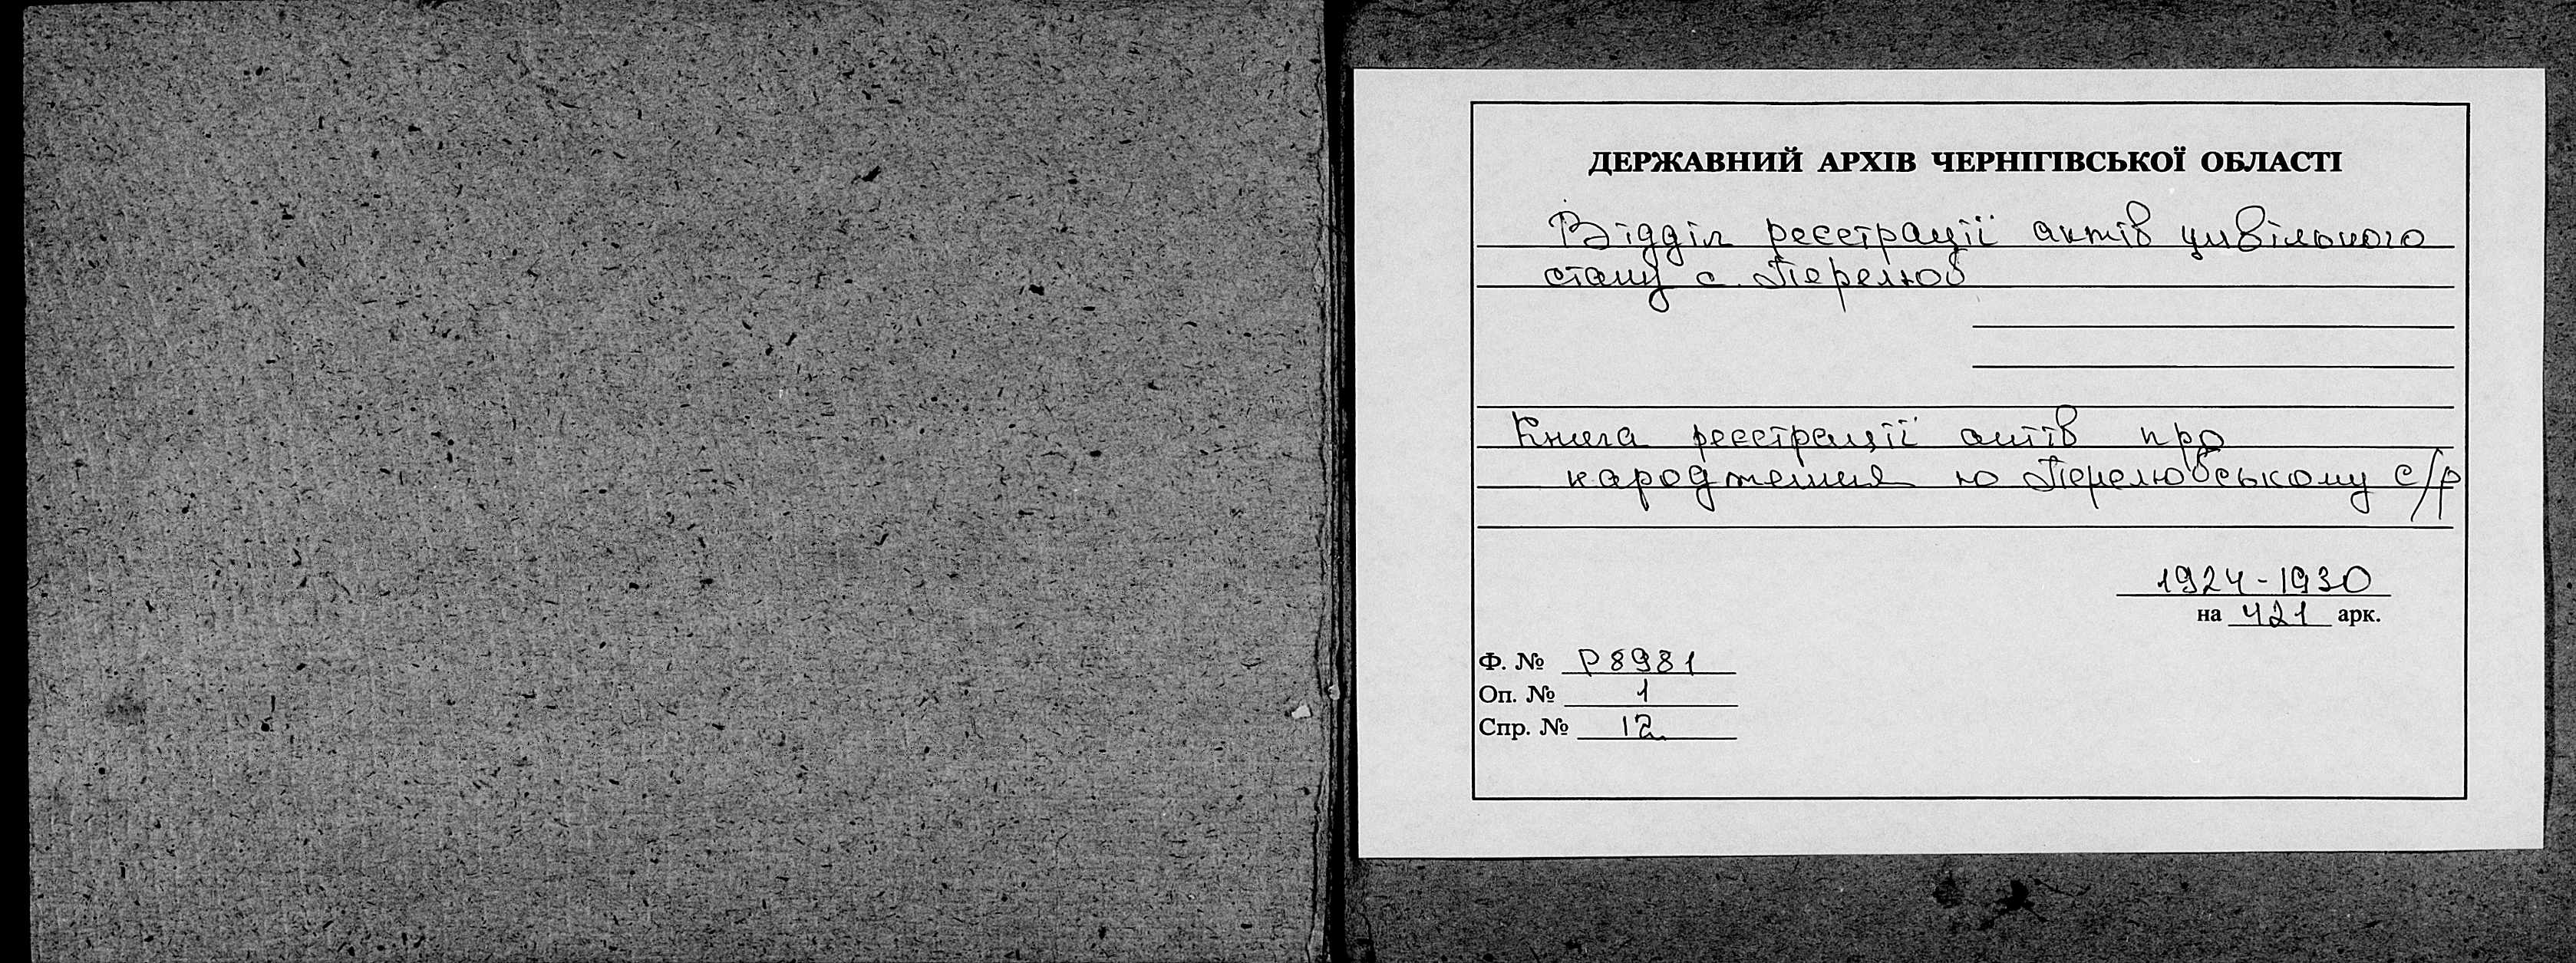 ДЕРЖАВНИЙ АРХІВ ЧЕРНІГІВСЬКОЇ ОБЛАСТІ
Відділ реєстрації актів цивільного
стану с. Перелюб
Книга реєстрації актів про
народження по Перелюбському с/р
1924-1930
на 421 арк.
Ф. № Р8981
Оп. № 1
Спр. № 12